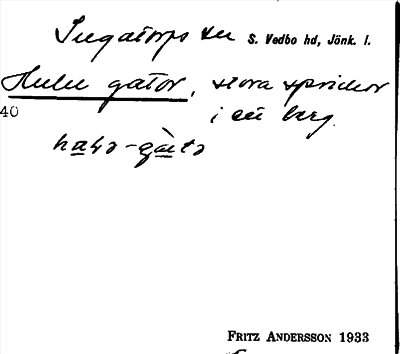 Ingatorps sn S. Vedbo hd, Jönk. l.
Hulu gator, stora sprickor
40
i ett berg.
FRITZ ANDERSSON 1933